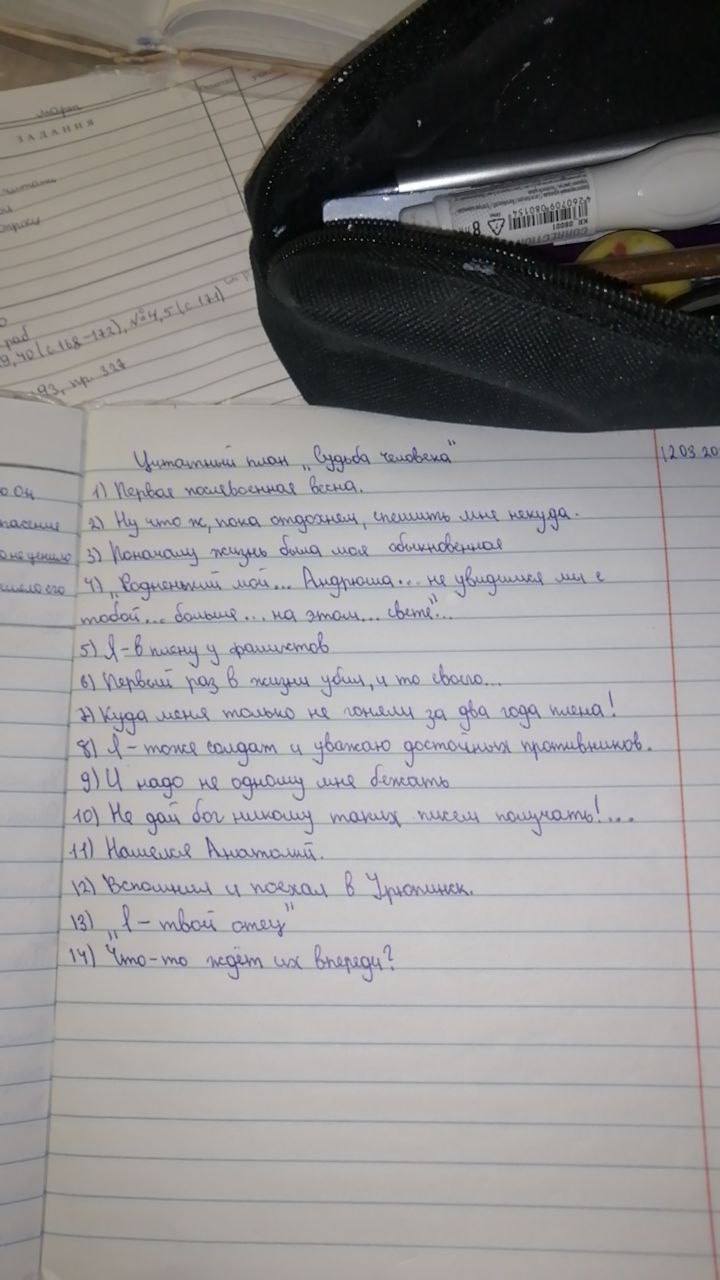 ЗАДАНИЯ
читать
раб
9,40 (с 168-172), №4,5 (с 171)
93, пр. 327
CORRECTION
KR 08001
4260709080154
Цитатный план „Судьба человека"
12 03 20
1) Первая послевоенная весна.
2) Ну что ж, пока отдохнем, спешить мне некуда.
3) Поначалу жизнь была моя обыкновенная
4) „Родненький мой... Андрюша... не увидимся мы с
тобой... больше... на этом... свете"...
5) Я-в плену у фашистов
6) Первый раз в жизни убил, и то своего...
7) Куда меня только не гоняли за два года плена!
8) Я-тоже солдат и уважаю достойных противников.
9) И надо не одному мне бежать
10) Не дай бог никому таких писем получать!...
11) Нашелся Анатолий.
12) Вспомнил и поехал в Урюпинск.
13) „Я-твой отец"
14) Что-то ждёт их впереди?